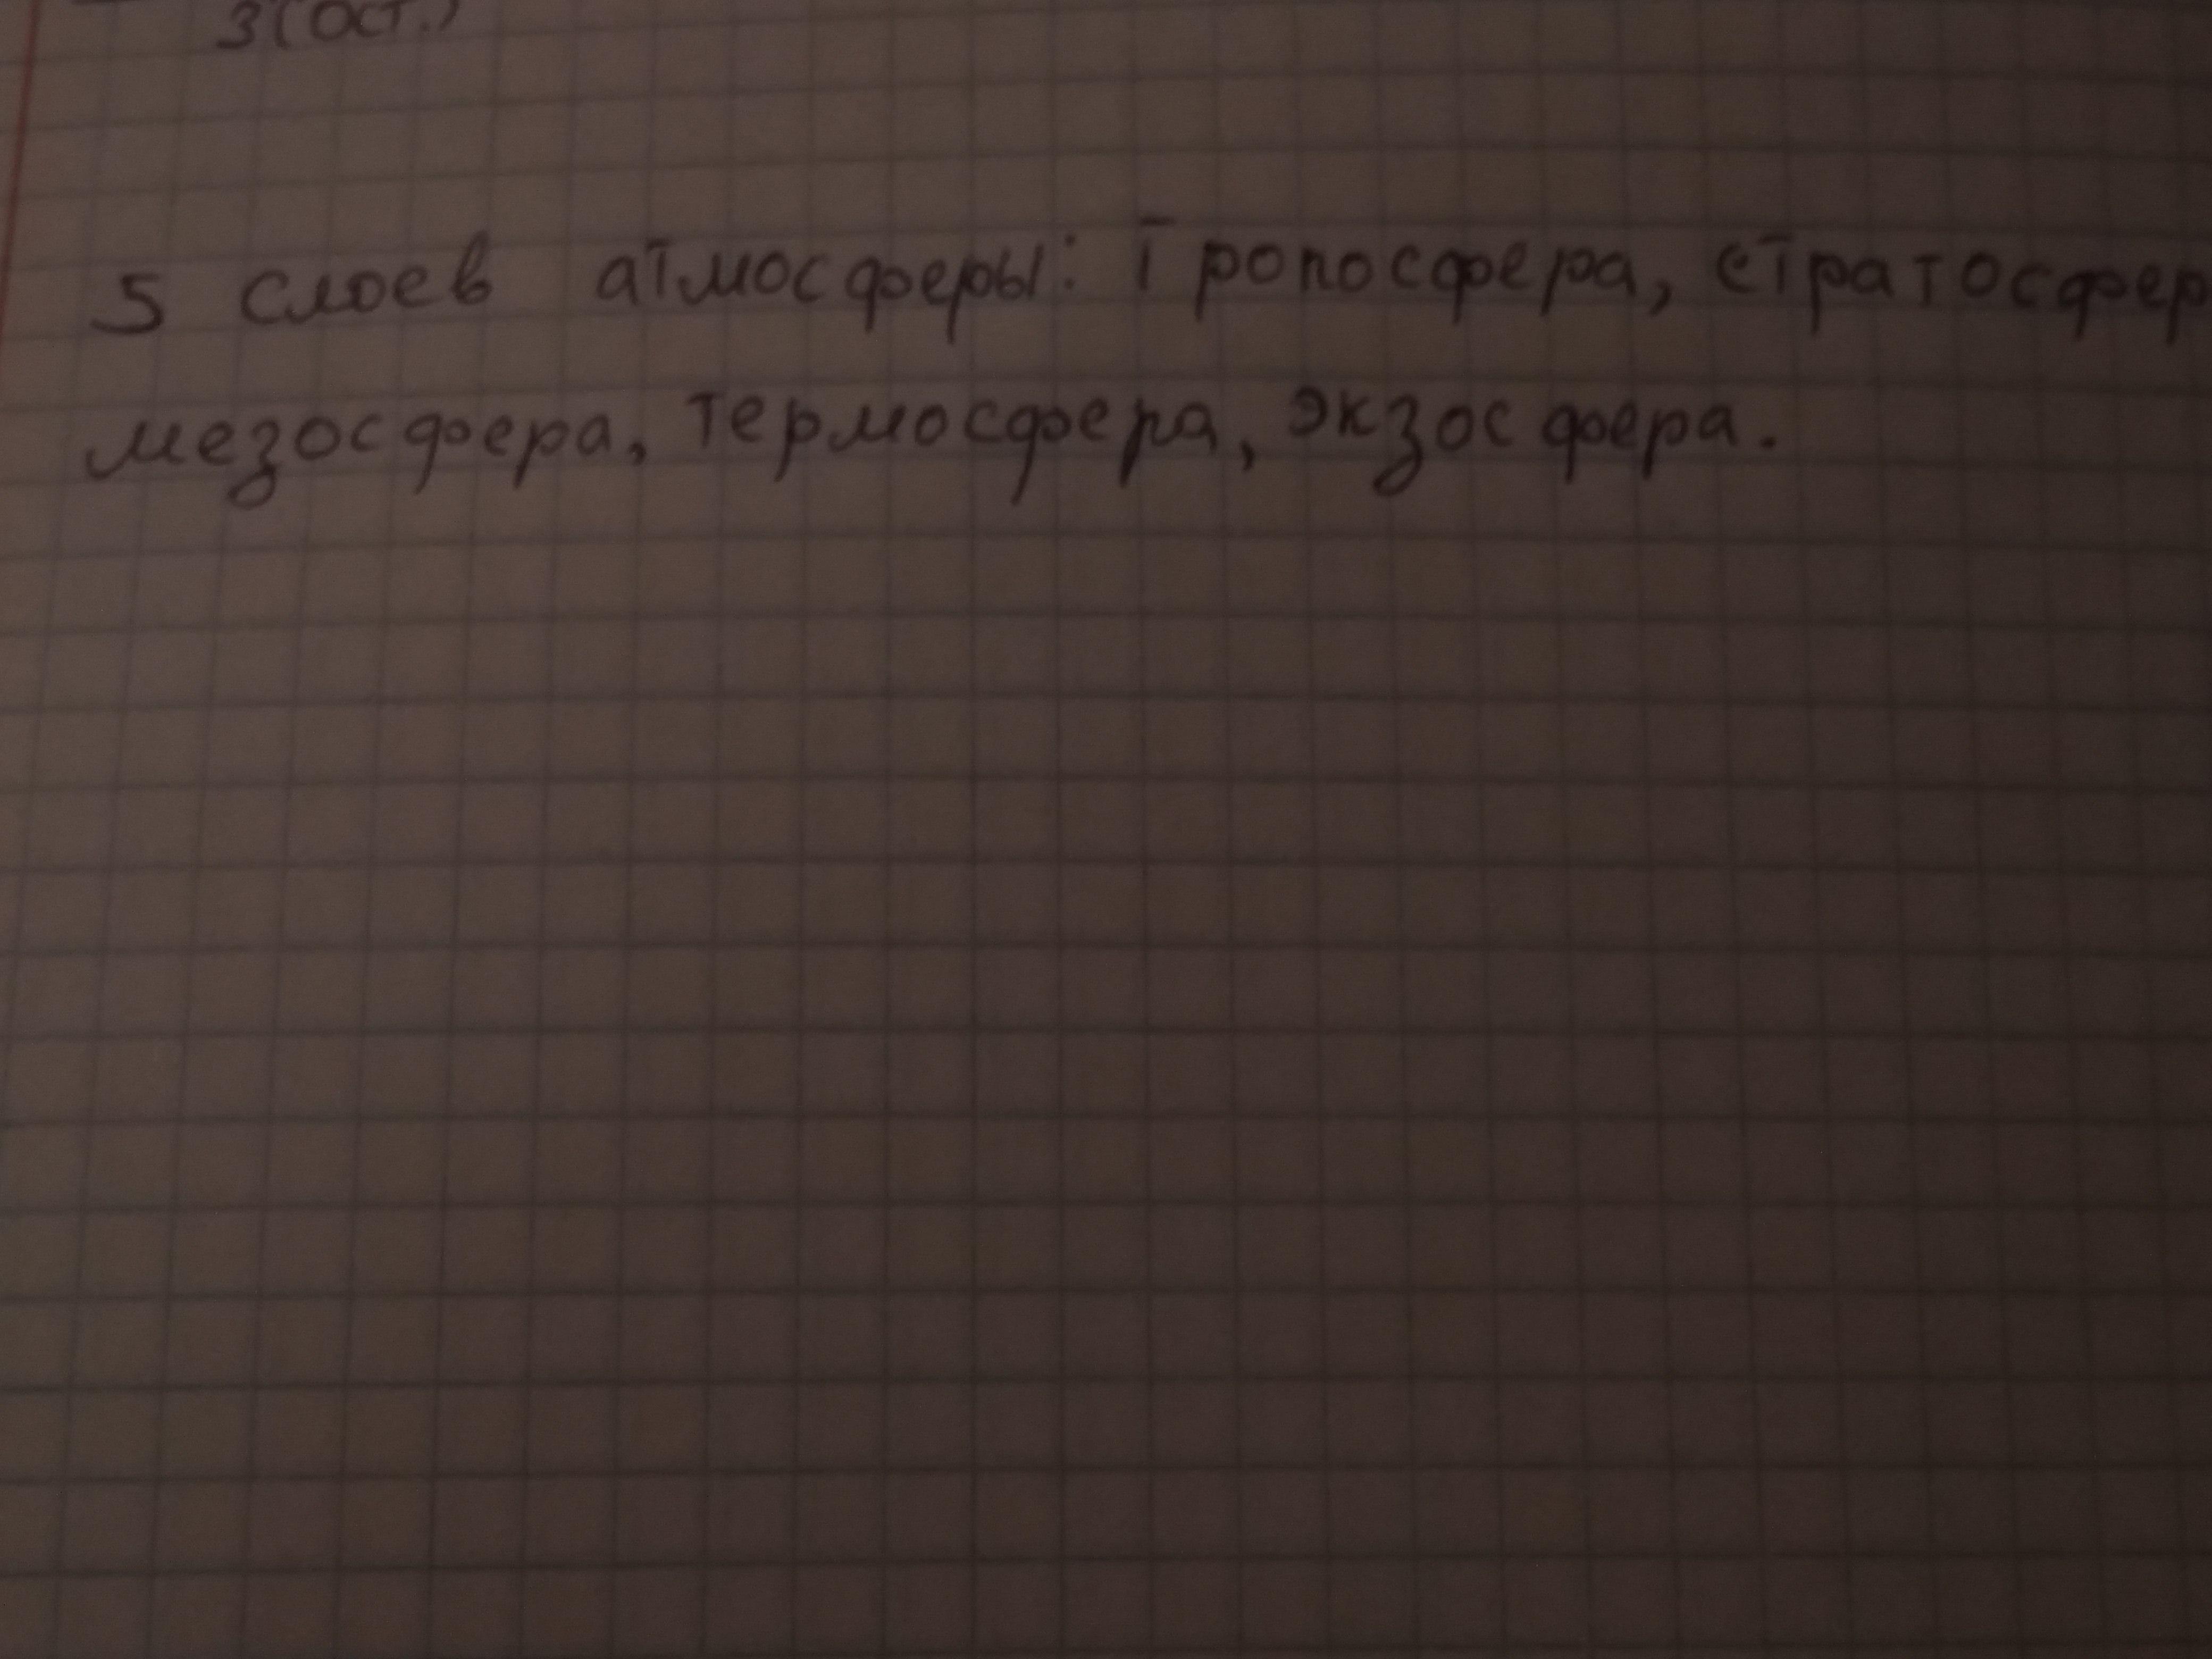 3(ост.)
5 слоев атмосферы: Тропосфера, стратосфер
мезосфера, термосфера, экзосфера.